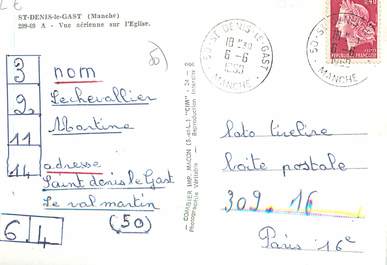 ST-DENIS-le-GAST (Manche)
209-69 A - Vue aérienne sur l'Eglise.
3
nom
2
Lechevallier
11
Martine
14
adresse
Saint denis le Gast
Le val martin
6 4
(50)
COMBIER IMP. MACON (S.-et-L.) "CIM"
Reproduction interdite
50-ST DENIS-le-GAST
6-6
MANCHE
loto tirelire
boîte postale
309.16
Paris 16e